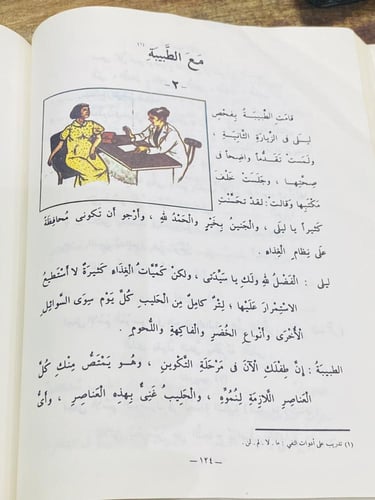 مَعَ الطَّبِيبَةِ (١)
- ٢ -
قَامَتِ الطَّبِيبَةُ بِفَحْصِ
لَيْلَى فِى الزِّيَارَةِ الثَّانِيَةِ ،
وَلَمَسَتْ تَقَدُّمًا وَاضِحًا فِى
صِحَّتِهَا ، وَجَلَسَتْ خَلْفَ
مَكْتَبِهَا وَقَالَتْ : لَقَدْ تَحَسَّنْتِ
كَثِيرًا يَا لَيْلَى ، وَالْجَنِينُ بِخَيْرٍ وَالْحَمْدُ لِلهِ ، وَأَرْجُو أَنْ تَكُونِى مُحَافِظَةً
عَلَى نِظَامِ الْغِذَاءِ .
ليلى : الْفَضْلُ لِلهِ وَلَكِ يَا سَيِّدَتِى ، وَلكِنْ كَمِّيَّاتُ الْغِذَاءِ كَثِيرَةٌ لَا أَسْتَطِيعُ
الاسْتِمْرَارَ عَلَيْهَا ، لِتْرٌ كَامِلٌ مِنَ الْحَلِيبِ كُلَّ يَوْمٍ سِوَى السَّوَائِلِ
الْأُخْرَى وَأَنْوَاعِ الْخُضَرِ وَالْفَاكِهَةِ وَاللُّحُومِ .
الطبيبة : إِنَّ طِفْلَكِ الْآنَ فِى مَرْحَلَةِ التَّكْوِينِ ، وَهُوَ يَمْتَصُّ مِنْكِ كُلَّ
الْعَنَاصِرِ اللَّازِمَةِ لِنُمُوِّهِ ، وَالْحَلِيبُ غَنِىٌّ بِهذِهِ الْعَنَاصِرِ ، وَأَىُّ
(١) تدريب على أدوات النفي : ما . لا . لم . لن .
- ١٢٤ -